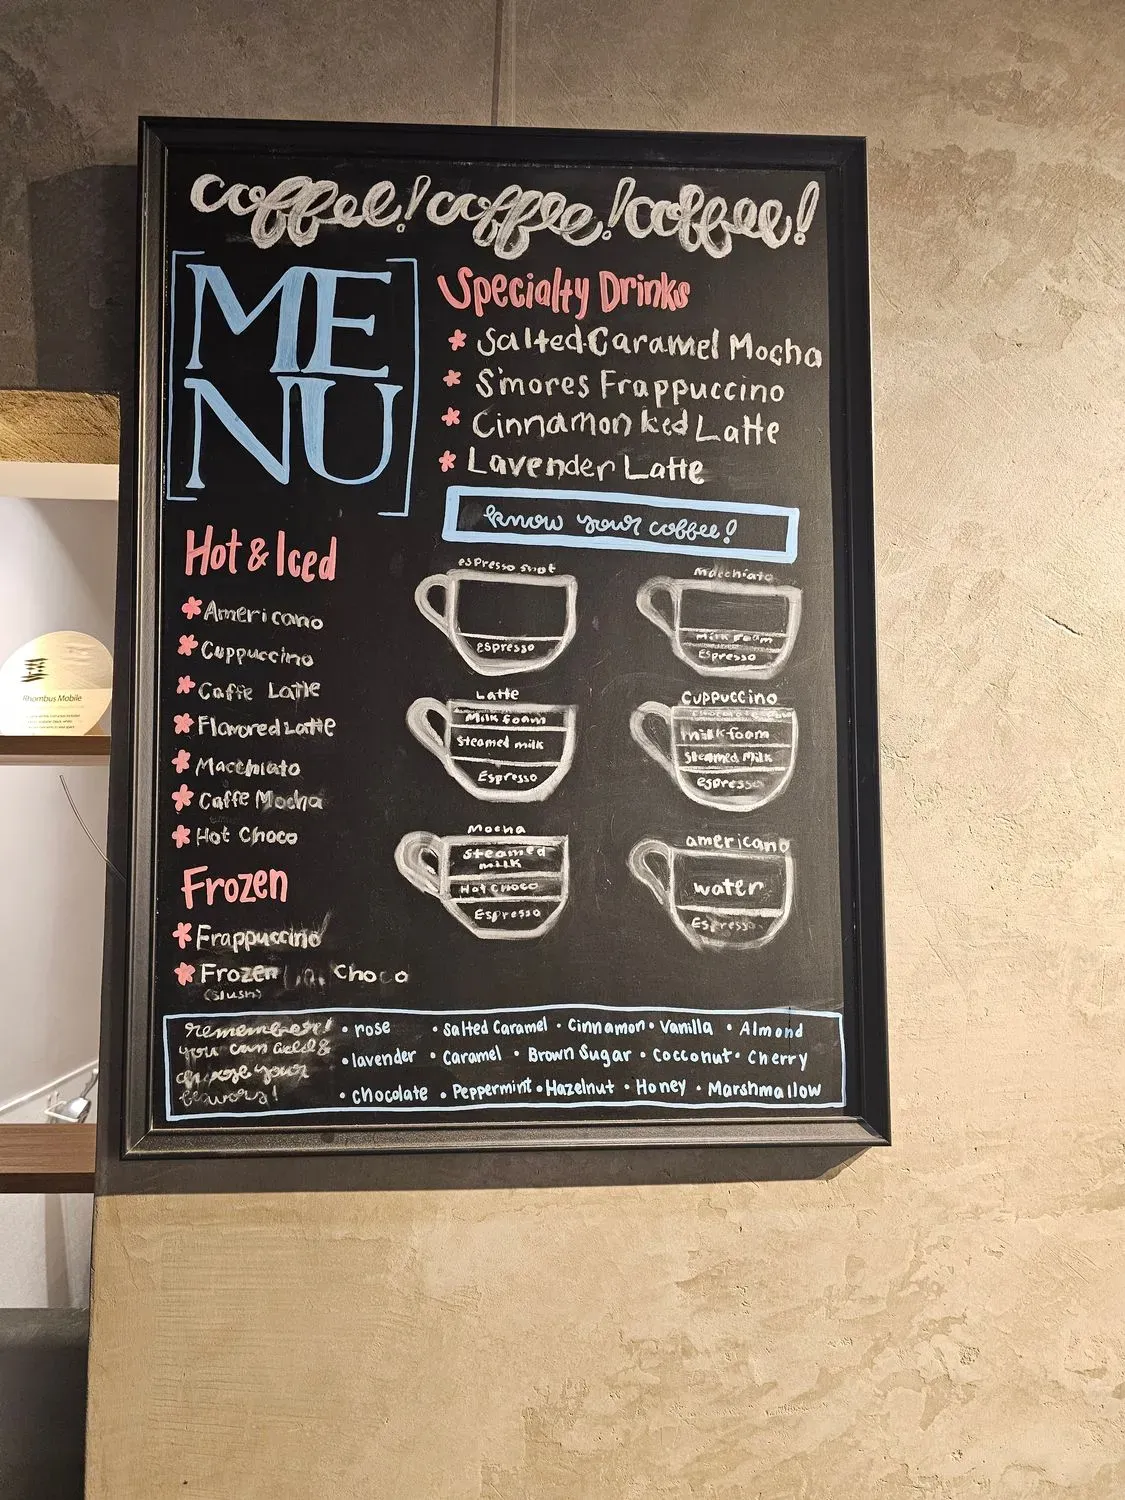 coffee! coffee! coffee!
ME
NU
Specialty Drinks
Salted Caramel Mocha
S'mores Frappuccino
Cinnamon Iced Latte
Lavender Latte
know your coffee!
Hot & Iced
Americano
Cuppuccino
Caffe Latte
Flavored Latte
Macchiato
Caffe Mocha
Hot Choco
Frozen
Frappuccino
Frozen Choco
(slush)
espresso shot
espresso
Macchiato
Milk foam
Espresso
Latte
Milk foam
Steamed milk
Espresso
Cuppuccino
milk foam
Steamed Milk
espresso
Mocha
Steamed
milk
Hot Choco
Espresso
americano
water
Espresso
remember!
you can add &
choose your
• rose • Salted Caramel • Cinnamon • Vanilla • Almond
• lavender • Caramel • Brown Sugar • Cocconut • Cherry
• chocolate • Peppermint • Hazelnut • Honey • Marshmallow
Rhombus Mobile